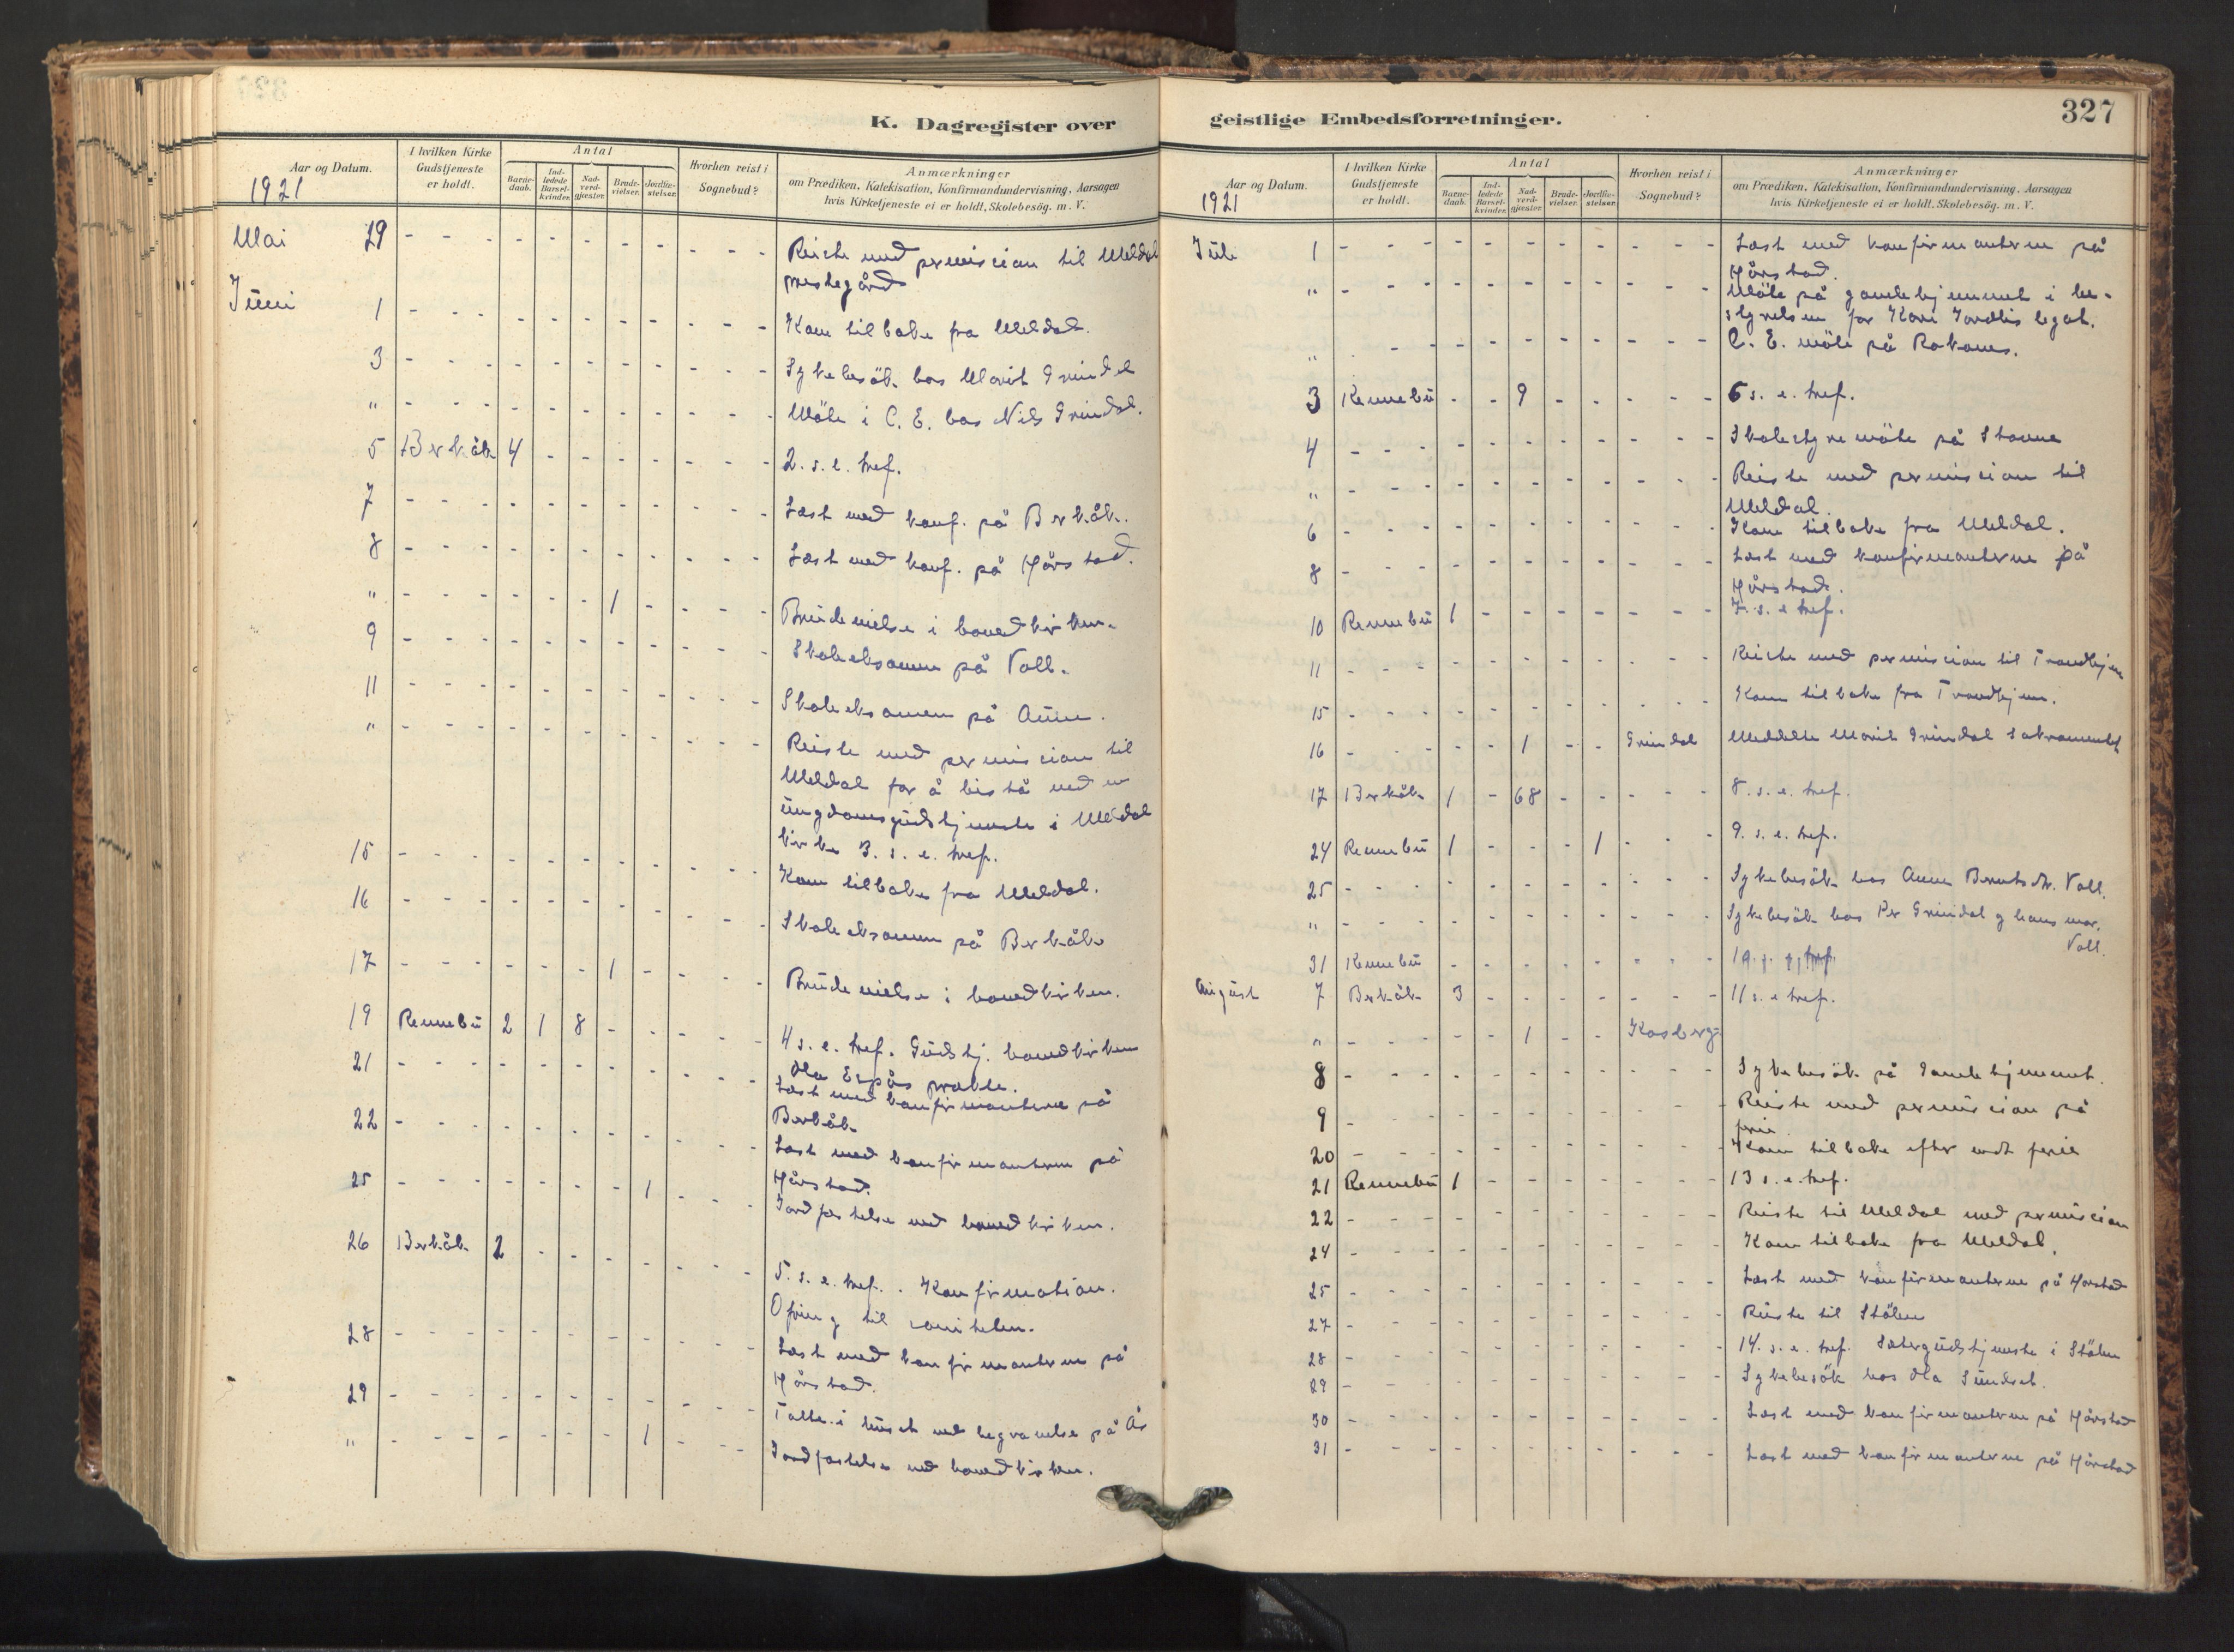 K. Dagregister over
Aar og Datum.
1921
I hvilken Kirke
Gudstjeneste
er holdt.
Antal
Barne-
daab.
Ind-
ledede
Barsel-
kvinder.
Nad-
verd-
gjæster.
Brude-
vielser.
Jordfæ-
stelser.
Hvorhen reist i
Sognebud?
Anmærkninger
om Prædiken, Katekisation, Konfirmandundervisning, Aarsagen
hvis Kirketjeneste ei er holdt, Skolebesøg. m. V.
Mai 29 Reiste med permission til Meldal
prestegård
Juni 1 Kom tilbake fra Meldal.
3 Sykebesök hos Marit Grindal
" Möte i C. E. hos Nils Grindal.
5 Berkåk 4 2. s. e. tref.
7 Læst med konf. på Berkåk.
8 Læst med konf. på Hårstad.
" 1 Brudevielse i hovedkirken.
9 Skoleeksamen på Voll.
11 Skoleeksamen på Aune.
" Reiste med permission til
Meldal for å bistå ved en
ungdomsgudstjeneste i Meldal
kirke 3. s. e. tref.
15 Kom tilbake fra Meldal.
16 Skoleeksamen på Berkåk
17 1 Brudevielse i hovedkirken.
19 Rennebu 2 1 8 4 s. e. tref. Gudstj. hovedkirken
Ola Espås prækte.
21 Læst med konfirmantene på
Berkåk
22 Læst med konfirmanterne på
Hårstad.
25 1 Jordfestelse ved hovedkirken.
26 Berkåk 2 5. s. e. tref. . Konfirmation.
Ofring til
28 Læst med konfirmanterne på
Hårstad.
29 Talte i huset ved begravelse på Ås
" 1 Jordfæstelse ved hovedkirken.
geistlige Embedsforretninger.
327
Aar og Datum.
1921
I hvilken Kirke
Gudstjeneste
er holdt.
Antal
Barne-
daab.
Ind-
ledede
Barsel-
kvinder.
Nad-
verd-
gjæster.
Brude-
vielser.
Jordfæ-
stelser.
Hvorhen reist i
Sognebud?
Anmærkninger
om Prædiken, Katekisation, Konfirmandundervisning, Aarsagen
hvis Kirketjeneste ei er holdt, Skolebesøg. m. V.
Juli 1 Læst med konfirmanterne på
Hårstad.
" Möte på gamlehjemmet i be-
styrelsen for Kari legat.
" C. E. möte på
3 Rennebu 9 6 s. e. tref.
4 Skolestyremöte på Stamne
" Reiste med permission til
Meldal.
6 Kom tilbake fra Meldal.
8 Læst med konfirmanterne på
Hårstad.
10 Rennebu 1 7. s. e tref.
11 Reiste med permission til Trondhjem
15 Kom tilbake fra Trondhjem.
16 1 Grindal Meddelte Marit Grindal sakramentet
17 Berkåk 1 68 8. s. e. tref.
24 Rennebu 1 1 9. s. e. tref.
25 Sykebesök hos Anne Berntsdtr. Voll.
" Sykebesök hos Per Grindal g hans mor.
Voll.
31 Rennebu 10. s. e. tref.
August 7 Berkåk 3 11 s. e tref.
" 1 Kosberg
8 Sykebesök på Gamlehjemmet.
9 Reiste med permission på
ferie
20 Kom tilbake efter endt ferie
21 Rennebu 1 13 s. e. tref.
22 Reiste til Meldal med permission
24 Kom tilbake fra Meldal.
25 Læst med konfirmanterne på Hårstad
27 Reiste til Stölen
28 14. s. e. tref. Sætergudstjeneste i Stölen
29 Sykebesök hos Ola Sundset.
30 Læst med konfirmanterne på Hårstad
31 Læst med konfirmanterne på Hårstad